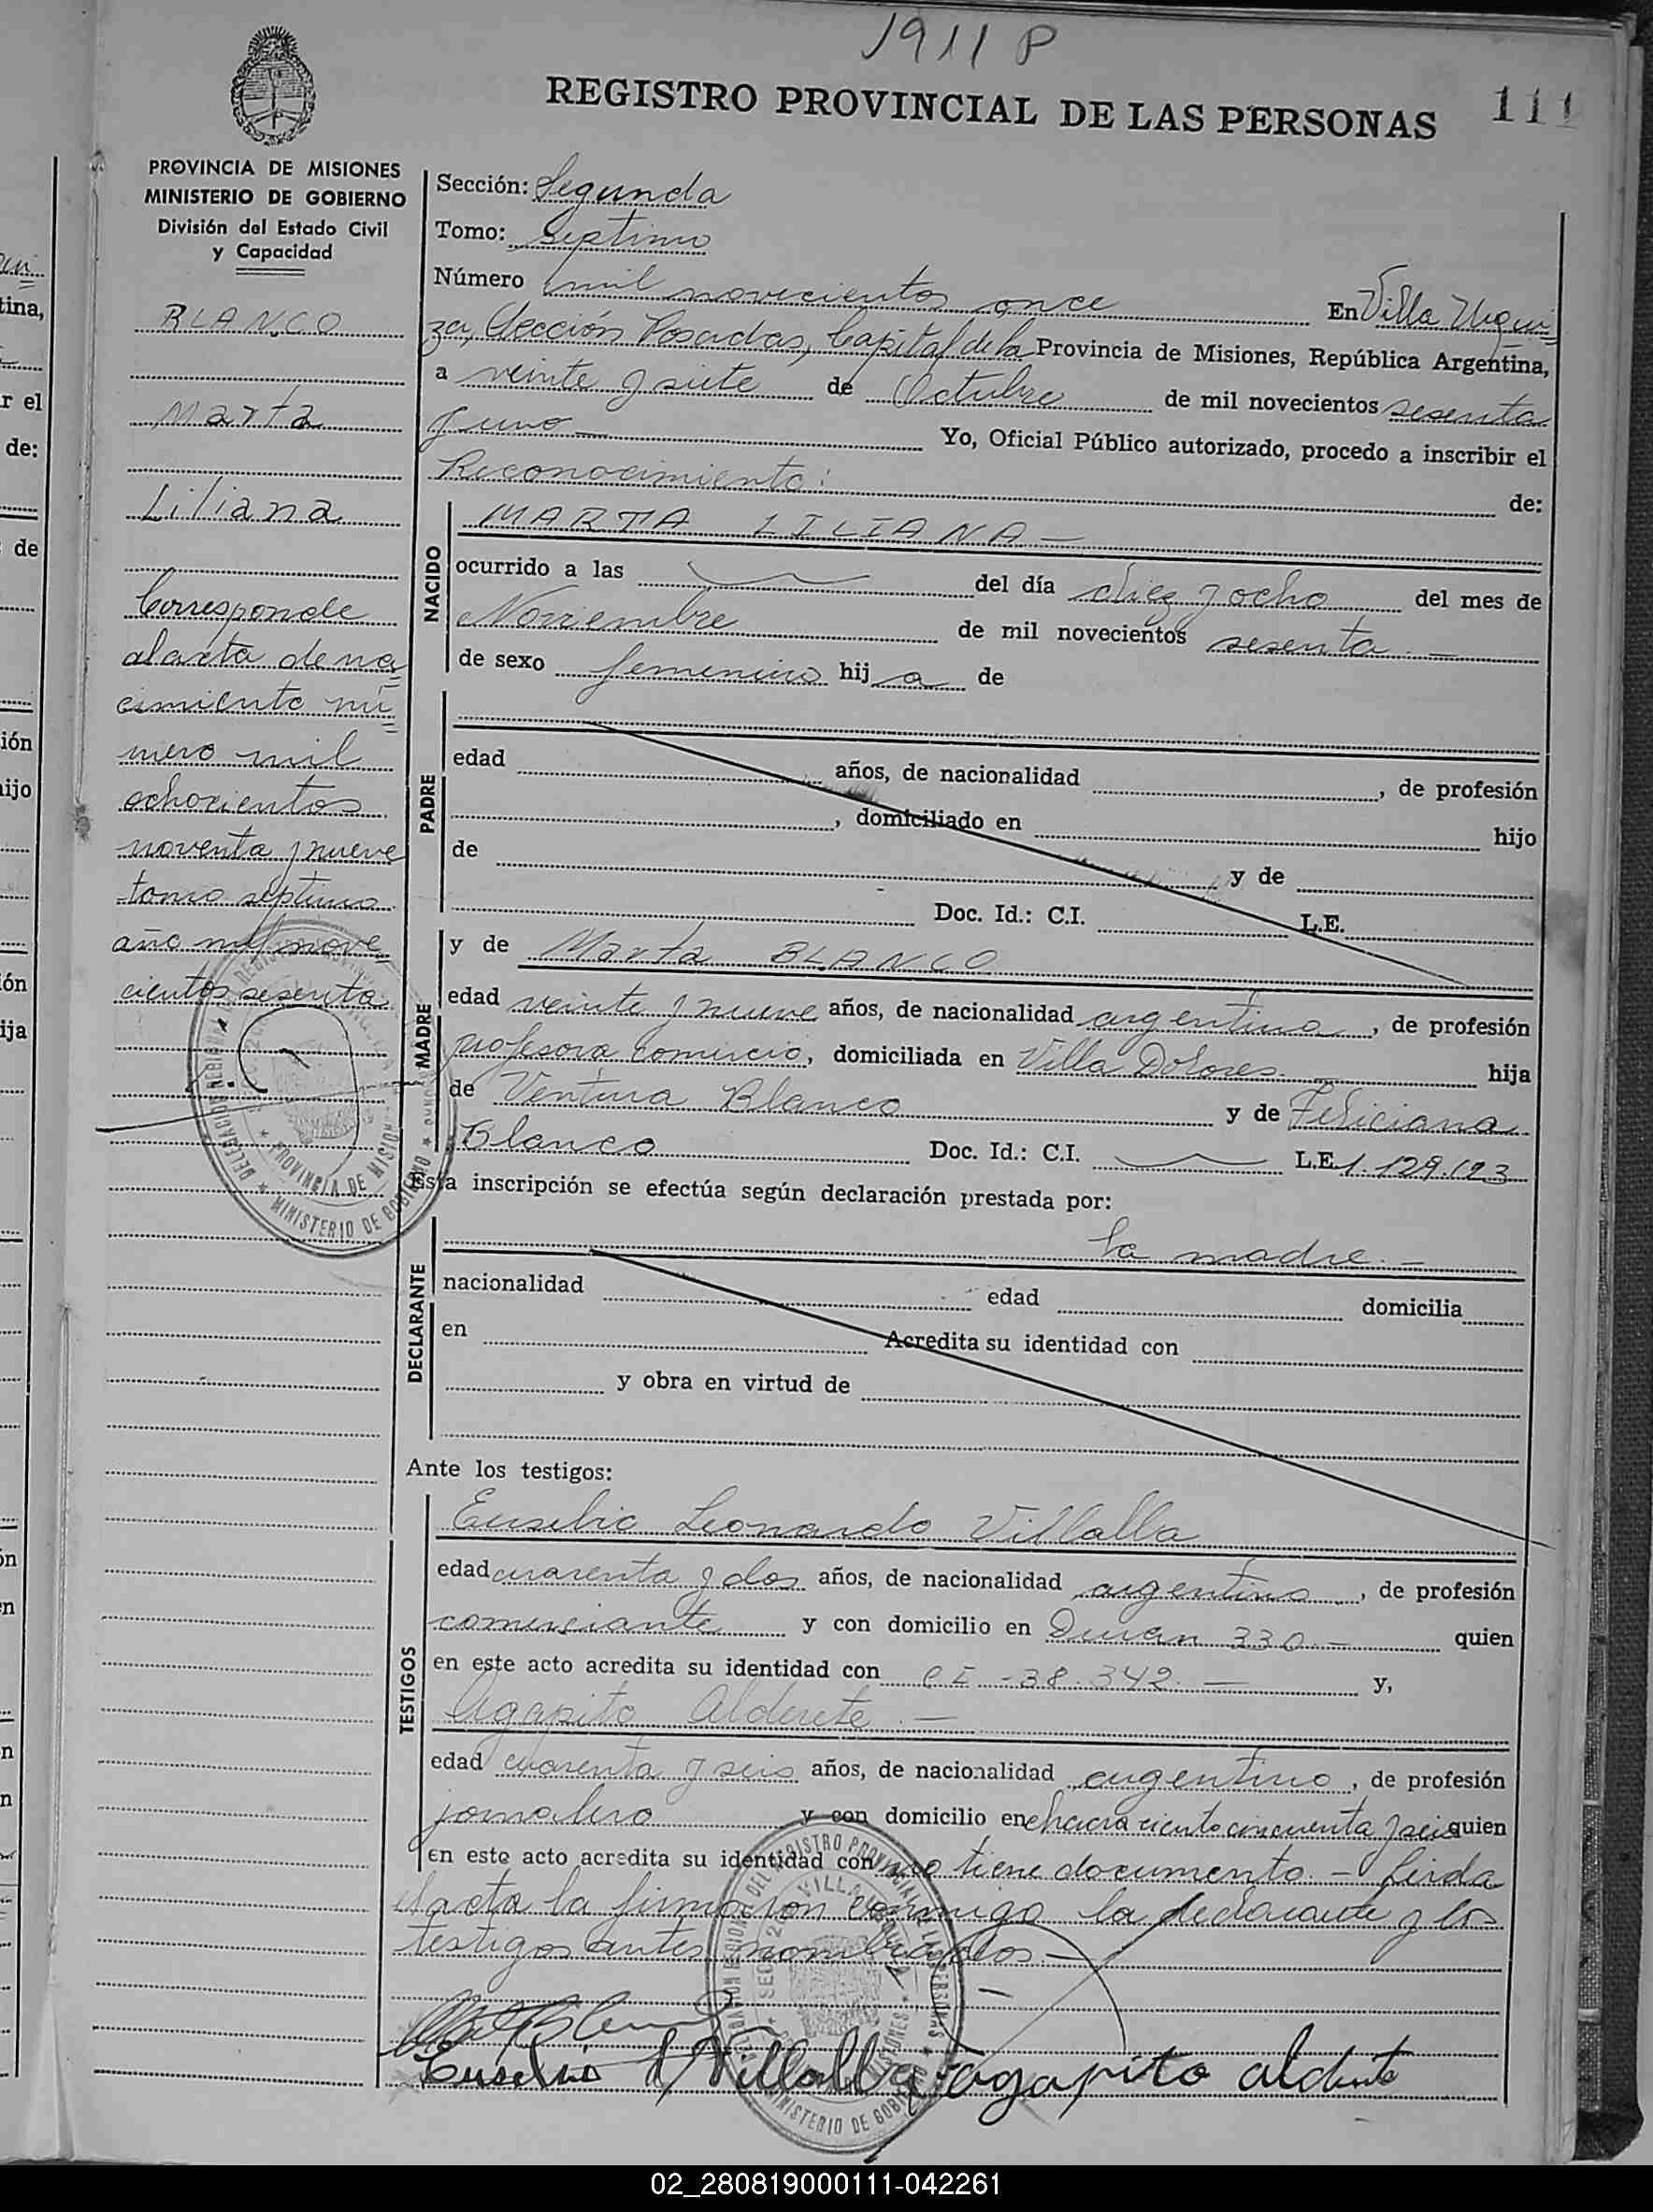 1911 P
REGISTRO PROVINCIAL DE LAS PERSONAS 111
PROVINCIA DE MISIONES
MINISTERIO DE GOBIERNO
División del Estado Civil
y Capacidad
BLANCO
Marta
Liliana
Corresponde
al acta de na
cimiento nú
mero mil
ochocientos
noventa y nueve
tomo séptimo
año mil nove
cientos sesenta
Sección: Segunda
Tomo: Septimo
Número mil novecientos once En Villa Urqui
za, Sección Posadas, Capital de la Provincia de Misiones, República Argentina,
a veinte y siete de Octubre de mil novecientos sesenta
y uno Yo, Oficial Público autorizado, procedo a inscribir el
Reconocimiento: de:
NACIDO
MARTA LILIANA
ocurrido a las del día diez y ocho del mes de
Noviembre de mil novecientos sesenta.
de sexo femenino hija de
PADRE
edad años, de nacionalidad , de profesión
, domiciliado en hijo
de y de
Doc. Id.: C.I. L.E.
MADRE
y de Marta BLANCO
edad veinte y nueve años, de nacionalidad argentina, de profesión
profesora comercio, domiciliada en Villa Dolores hija
de Ventura Blanco y de Feliciana
Blanco Doc. Id.: C.I. L.E. 1.129.123
Esta inscripción se efectúa según declaración prestada por:
la madre.
DECLARANTE
nacionalidad edad domicilia
en Acredita su identidad con
y obra en virtud de
Ante los testigos:
TESTIGOS
Eusebio Leonardo Villalba
edad cuarenta y dos años, de nacionalidad argentino, de profesión
comerciante y con domicilio en Duran 330 quien
en este acto acredita su identidad con CI - 38.342. y,
Agapito Alderete
edad cuarenta y seis años, de nacionalidad argentino, de profesión
jornalero y con domicilio en chacra ciento cincuenta y seis quien
en este acto acredita su identidad con no tiene documento. - Leida
el acta la firmaron conmigo la declarante y los
testigos antes nombrados
Eusebio L Villalba agapito alderete
PROVINCIA DE MISIONES
MINISTERIO DE GOBIERNO
02_280819000111-042261